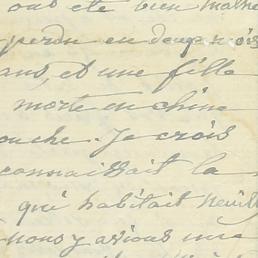 ont été bien malhe
perdu en deux mois
ans, et une fille
morte en chine
ouche. Je crois
connaissait la
qui habitait neuill
nous y avions une